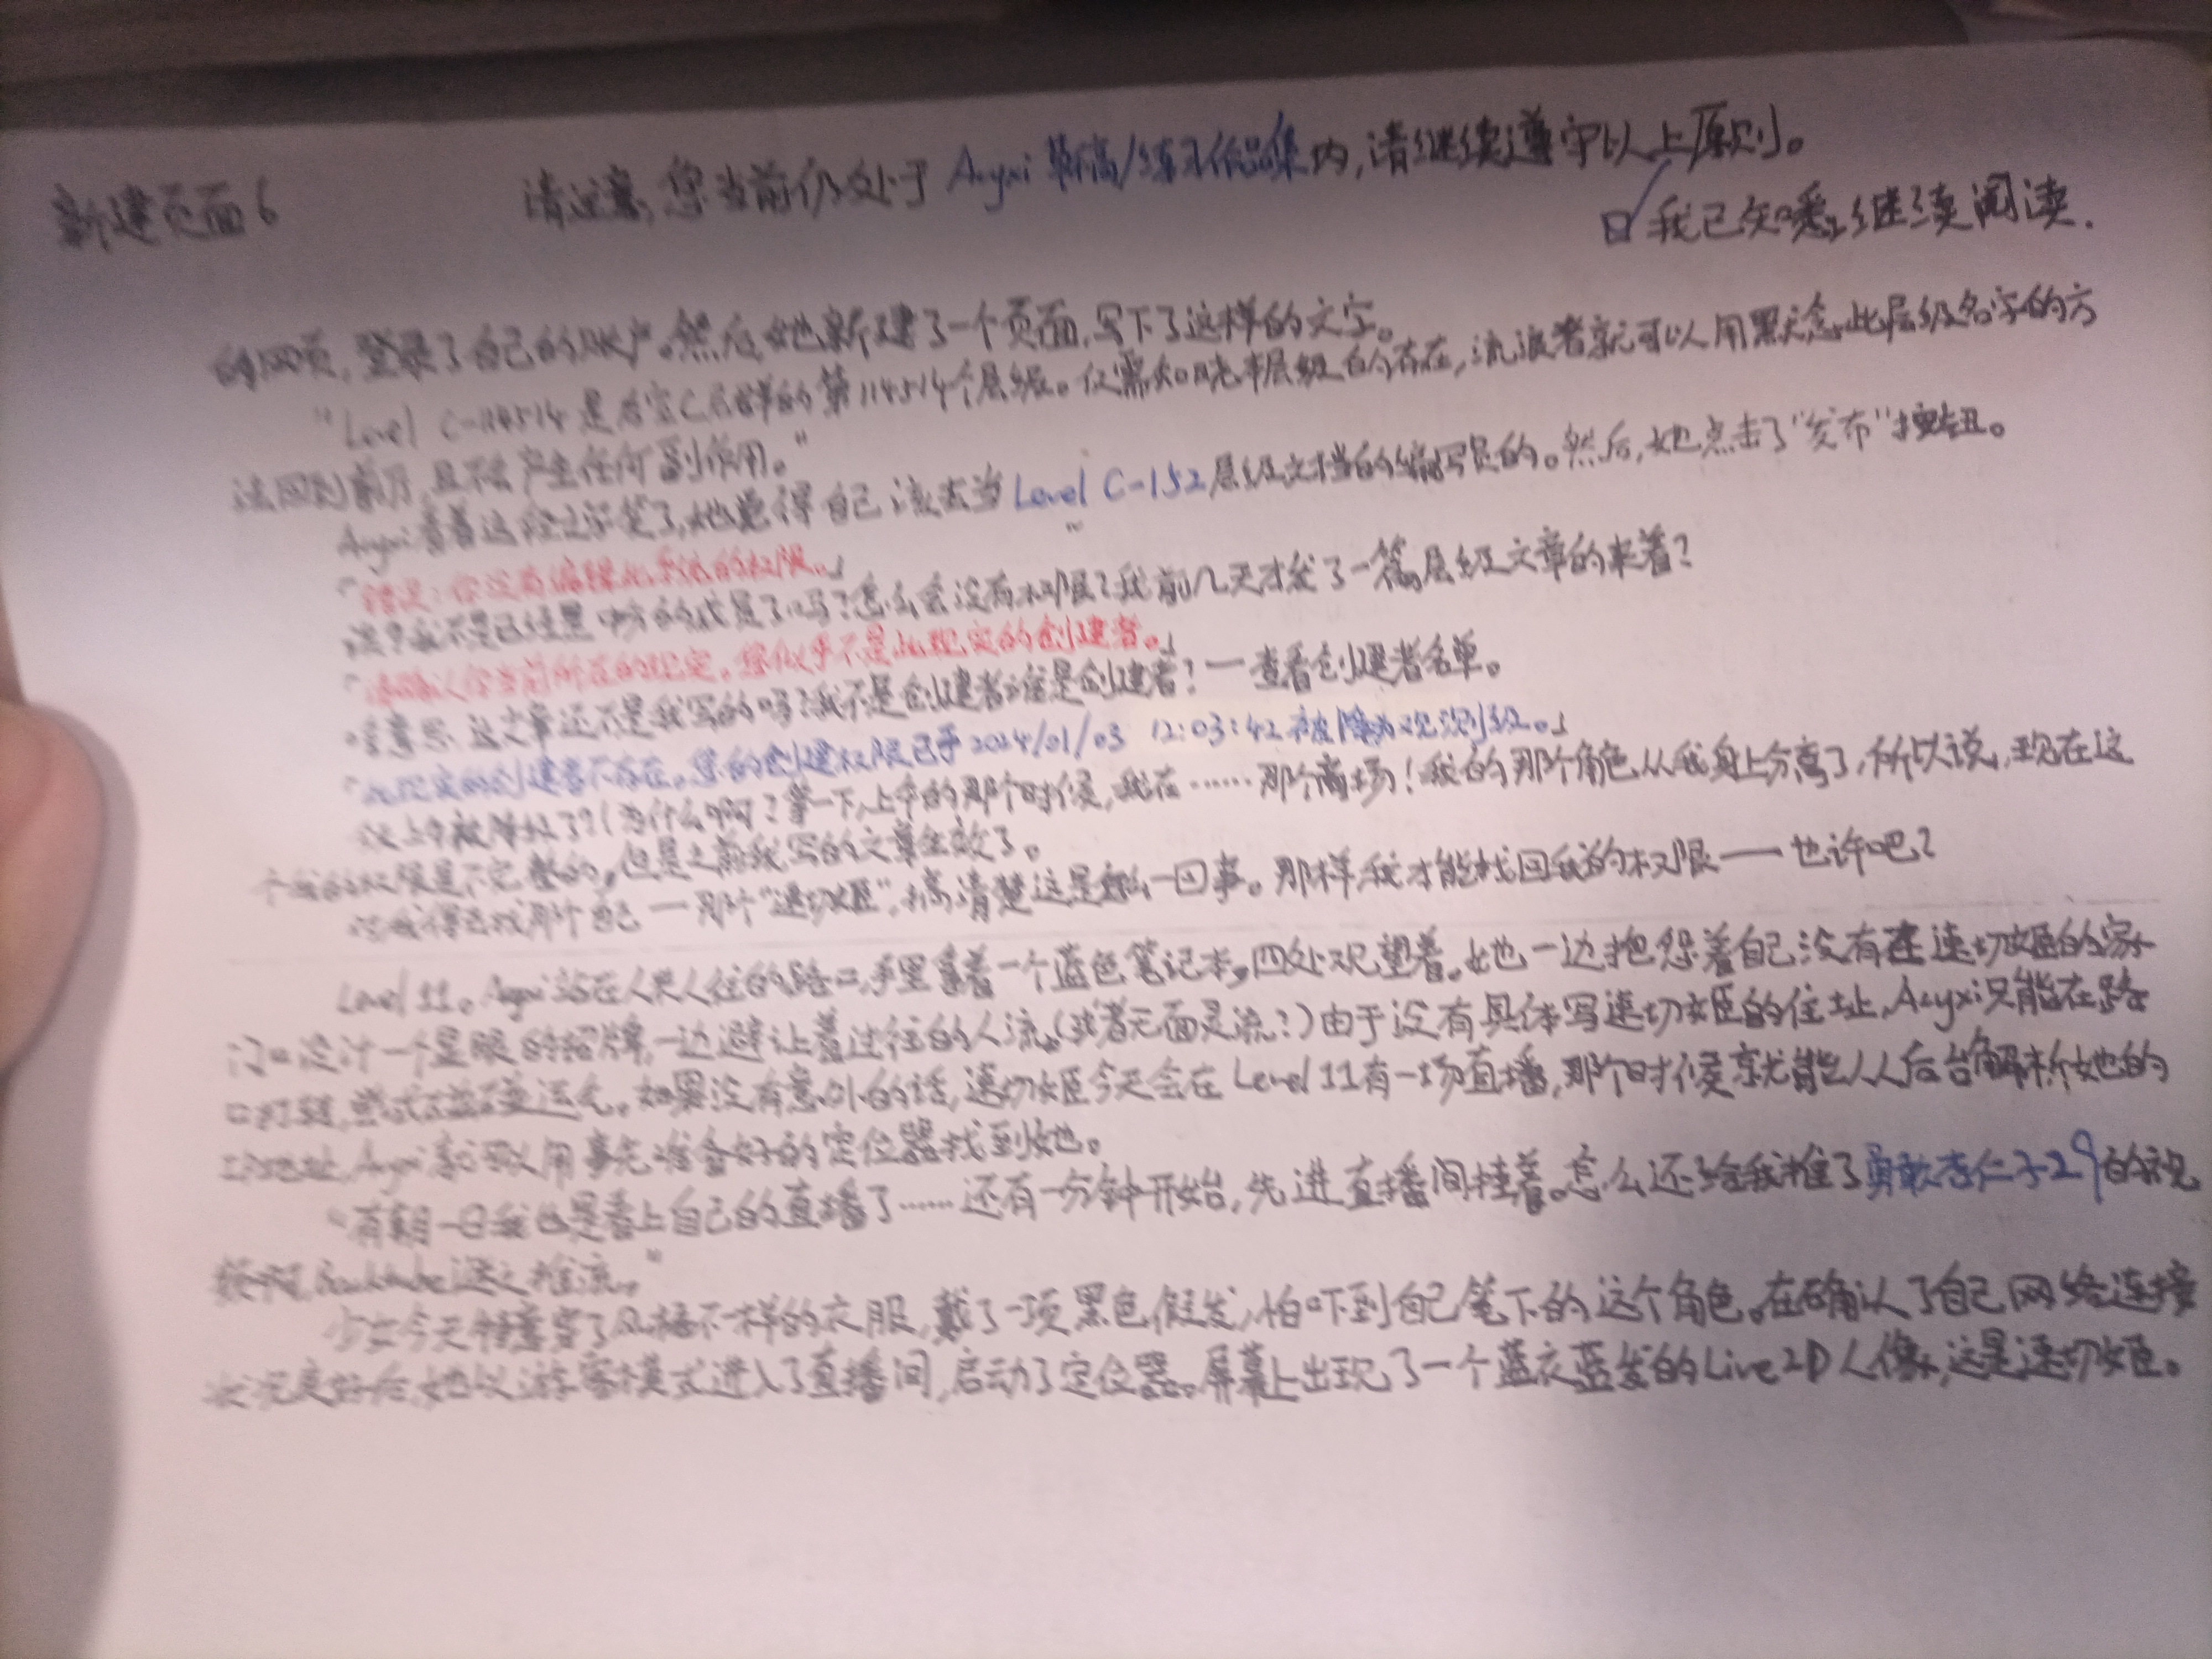 新建页面6
请注意,您当前仍处于 Auyxi 草稿/练习作品集内,请继续遵守以上原则。
我已知悉,继续阅读.
的网页,登录了自己的账户。然后,她新建了一个页面,写下了这样的文字。
"Level C-114514是后室C层群的第114514个层级。仅需知晓本层级的存在,流浪者就可以用默念此层级名字的方
法回到前厅,且不会产生任何副作用。"
Auyxi看着这段文字笑了,她觉得自己该去当Level C-152层级文档的编写员的。然后,她点击了"发布"按钮。
「错误:你没有编辑此系统的权限。」
我不是已经是中方的成员了吗?怎么会没有权限?我前几天才发了一篇层级文章的来着?
「请确认你当前所在的现实。您似乎不是此现实的创建者。」
啥意思 这文章还不是我写的吗?我不是创建者谁是创建者?一查看创建者名单。
「此现实的创建者不存在。您的创建权限已于2024/01/03 12:03:42被降为观测级。」
上午被降级了?(为什么啊?等一下,上午的那个时候,我在……那个商场!我的那个角色从我身上分离了,所以说,现在这
个我的权限是不完整的,但是之前我写的文章生效了。
我得去找那个自己——那个"速切姬",搞清楚这是怎么一回事。那样,我才能找回我的权限——也许吧?
Level 11。Auyxi站在人来人往的路口,手里拿着一个蓝色笔记本,四处观望着。她一边抱怨着自己没有在速切姬的家
门口设计一个显眼的招牌,一边避让着过往的人流。(或者无面灵流?)由于没有具体写速切姬的住址,Auyxi只能在路
口盯梢,尝试碰碰运气。如果没有意外的话,速切姬今天会在Level 11有一场直播,那个时候就能从后台解析她的
IP地址,Auyxi就可以用事先准备好的定位器找到她。
"有朝一日我也是看上自己的直播了……还有一分钟开始,先进直播间挂着。怎么还给我推了勇敢杏仁子29的视
频啊,Backtube这推流。"
少女今天特意穿了风格不一样的衣服,戴了一顶黑色假发,怕吓到自己笔下的这个角色。在确认了自己网络连接
状况良好后,她以游客模式进入了直播间,启动了定位器。屏幕上出现了一个蓝衣蓝发的Live2D人像,这是速切姬。